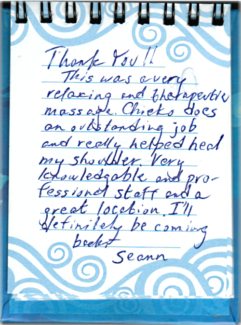 Thank You!!
This was a very
relaxing and therapeutic
massage. Chieko does
an outstanding job
and really helped heal
my shoulder. Very
knowledgable and pro-
fessional staff and a
great location. I'll
definitely be coming
back!
Seann